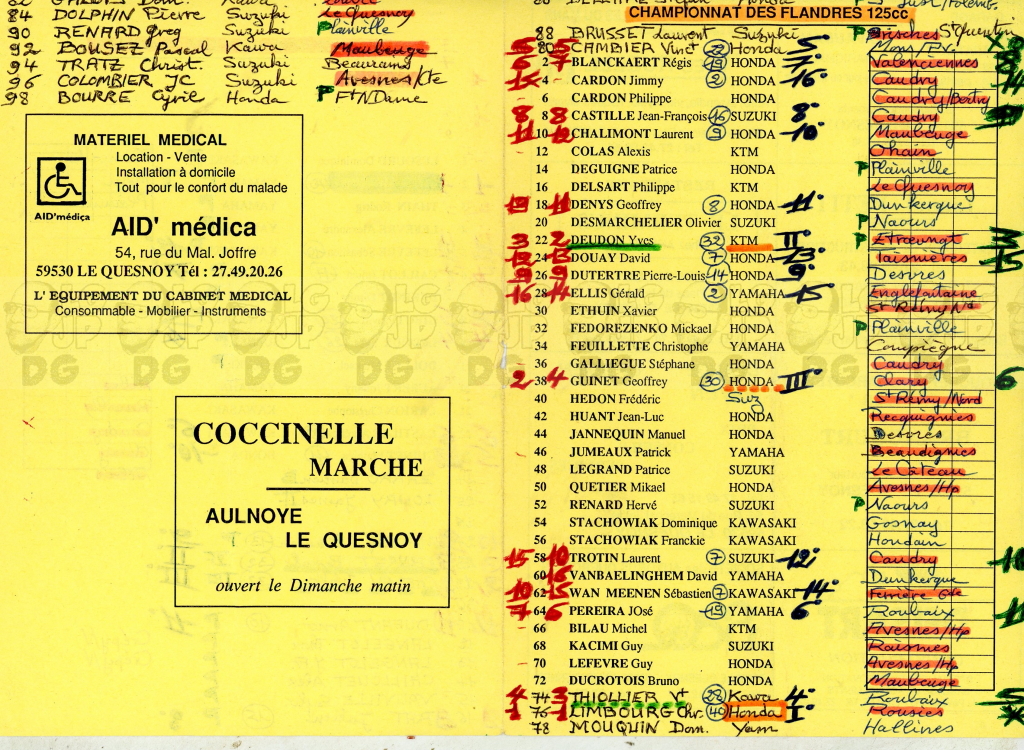 84 DOLPHIN Pierre Suzuki Le Quesnoy
90 RENARD Greg Suzuki P Plainville
92 BOUSEZ Pascal Kawa Maubeuge
94 TRATZ Christ. Suzuki Beaurains
96 COLOMBIER JC Suzuki Avesnes/Cte
98 BOURRE Cyril Honda P Ft N Dame
MATERIEL MEDICAL
Location - Vente
Installation à domicile
Tout pour le confort du malade
AID'médiça
AID' médica
54, rue du Mal. Joffre
59530 LE QUESNOY Tél : 27.49.20.26
L' EQUIPEMENT DU CABINET MEDICAL
Consommable - Mobilier - Instruments
COCCINELLE
MARCHE
AULNOYE
LE QUESNOY
ouvert le Dimanche matin
CHAMPIONNAT DES FLANDRES 125cc
88 BRUSSET Laurent Suzuki P Brisches St Quentin
80 CAMBIER Vinct 22 Honda 5° Mons/Pv.
6 7 2 BLANCKAERT Régis 19 HONDA 7° Valenciennes
4 CARDON Jimmy 2 HONDA 16° Caudry
6 CARDON Philippe HONDA Caudry/Bertry
8 8 8 CASTILLE Jean-François 16 SUZUKI 8° Caudry
11 12 10 CHALIMONT Laurent 9 HONDA 10° Maubeuge
12 COLAS Alexis KTM Ohain
14 DEGUIGNE Patrice HONDA P Plainville
16 DELSART Philippe KTM Le Quesnoy
18 DENYS Geoffrey 8 HONDA 11° Dunkerque
20 DESMARCHELIER Olivier SUZUKI P Naours
3 2 22 DEUDON Yves 32 KTM II° P Etrœungt
24 DOUAY David 7 HONDA 13° Taisnières
9 9 26 DUTERTRE Pierre-Louis 14 HONDA 9° Desvres
16 14 28 ELLIS Gérald 2 YAMAHA 15 Englefontaine
30 ETHUIN Xavier HONDA St Rémy Nd
32 FEDOREZENKO Mickael HONDA P Plainville
34 FEUILLETTE Christophe YAMAHA Compiègne
36 GALLIEGUE Stéphane HONDA Caudry
2 4 38 GUINET Geoffrey 30 HONDA III° Clary 6
40 HEDON Frédéric Suz St Rémy/Nord
42 HUANT Jean-Luc HONDA Recquignies
44 JANNEQUIN Manuel HONDA Desvres
46 JUMEAUX Patrick YAMAHA Beaudignies
48 LEGRAND Patrice SUZUKI Le Câteau
50 QUETIER Mikael HONDA Avesnes/Hp
52 RENARD Hervé SUZUKI P Naours
54 STACHOWIAK Dominique KAWASAKI Gosnay
56 STACHOWIAK Franckie KAWASAKI Houdain
15 10 58 TROTIN Laurent 7 SUZUKI 12° Caudry
16 60 VANBAELINGHEM David YAMAHA Dunkerque
10 15 62 WAN MEENEN Sébastien 7 KAWASAKI 14° Ferrière Gde
7 6 64 PEREIRA JOsé 19 YAMAHA 6° Roubaix
66 BILAU Michel KTM Avesnes/Hp
68 KACIMI Guy SUZUKI Raismes
70 LEFEVRE Guy HONDA Avesnes/Hp
72 DUCROTOIS Bruno HONDA Maubeuge
4 3 74 THIOLLIER Vt 28 Kawa 4° Roubaix
1 1 76 LIMBOURG Chr. 40 Honda I° Rousies
78 MOUQUIN Dom. Yam Hallines